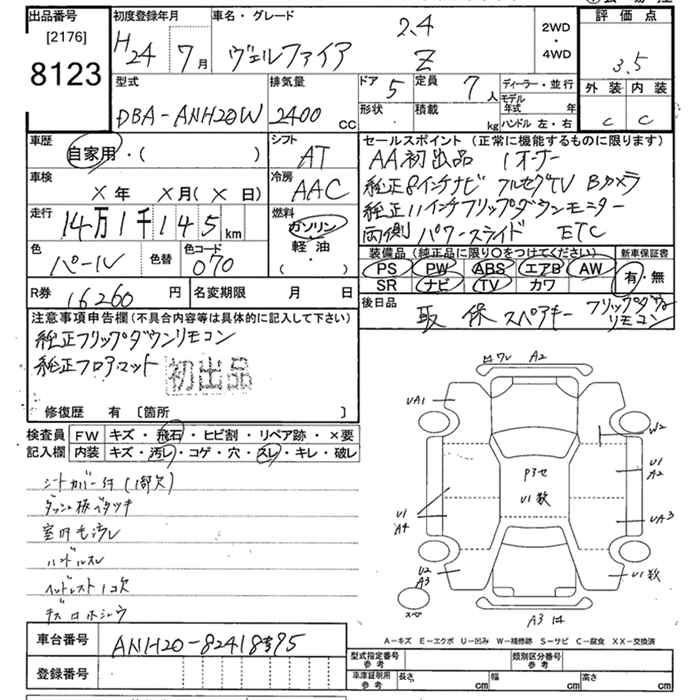 出品番号
[2176]
8123
初度登録年月
H24 7月
車名・グレード
ヴェルファイア 2.4 Z
2WD
・
4WD
評価点
3.5
外装 内装
C C
型式
DBA-ANH20W
排気量
2400 CC
ドア 5
形状 ・
定員 7人
積載 kg
ディーラー・並行
モデル年式 年
ハンドル 左・右
車歴
自家用・( )
シフト
AT
車検
X年 X月(X日)
冷房
AAC
走行
14万1千145km
燃料
ガソリン・軽油・( )
色
パール
色替
色コード
070
R券
16260円
名変期限 月 日
セールスポイント(正常に機能するものに限ります)
AA初出品 1オーナー
純正8インチナビ フルセグTV Bカメラ
純正11インチフリップダウンモニター
両側パワースライド ETC
装備品(純正品に限り〇をつけてください)
PS PW ABS エアB AW
SR ナビ TV カワ
新車保証書
有・無
後日品
取 保 スペアキー フリップダウンリモコン
注意事項申告欄(不具合内容等は具体的に記入して下さい)
純正フリップダウンリモコン
純正フロアマット
初出品
修復歴 有 〔箇所 〕
検査員記入欄
FW キズ・飛石・ヒビ割・リペア跡・×要
内装 キズ・汚レ・コゲ・穴・スレ・キレ・破レ
シートカバー付(1部欠)
ダッシュ板ベタツキ
室内毛汚レ
ハンドルスレ
ヘッドレスト1コ欠
車台番号
ANH20-8241895
登録番号
ロワレ A2
UA1
W2
P3セ
U1数
U1
A2
U1
A4
UA3
U2
A3
U1数
スペア
A3 はA-キズ E-エクボ U-凹み W-補修跡 S-サビ C-腐食 XX-交換済
型式指定番号
参考
類別区分番号
参考
車庫証明用
参考
長さ cm
幅 cm
高さ cm